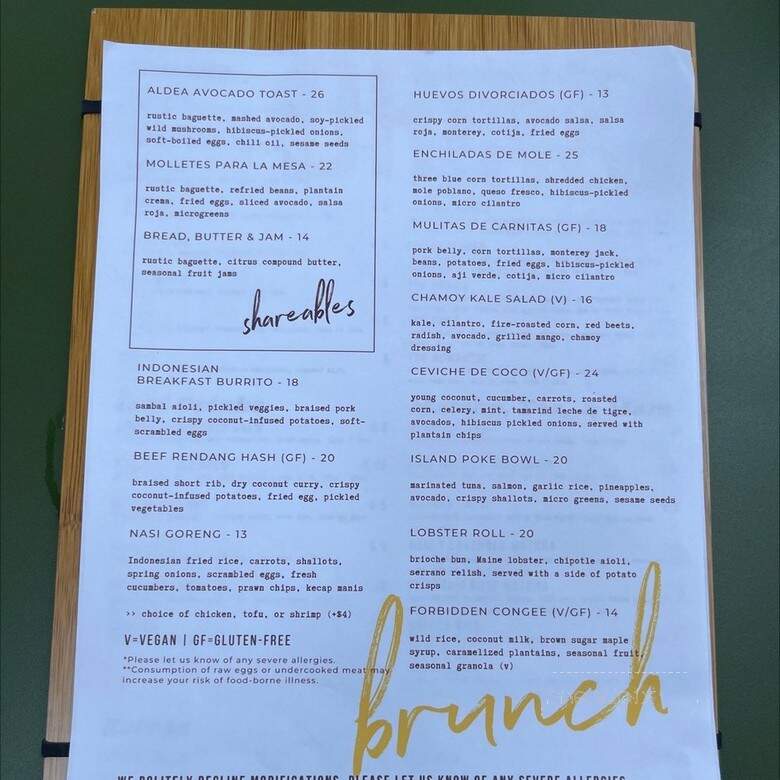 ALDEA AVOCADO TOAST - 26
rustic baguette, mashed avocado, soy-pickled
wild mushrooms, hibiscus-pickled onions,
soft-boiled eggs, chili oil, sesame seeds
MOLLETES PARA LA MESA - 22
rustic baguette, refried beans, plantain
crema, fried eggs, sliced avocado, salsa
roja, microgreens
BREAD, BUTTER & JAM - 14
rustic baguette, citrus compound butter,
seasonal fruit jams
shareables
INDONESIAN
BREAKFAST BURRITO - 18
sambal aioli, pickled veggies, braised pork
belly, crispy coconut-infused potatoes, soft-
scrambled eggs
BEEF RENDANG HASH (GF) - 20
braised short rib, dry coconut curry, crispy
coconut-infused potatoes, fried egg, pickled
vegetables
NASI GORENG - 13
Indonesian fried rice, carrots, shallots,
spring onions, scrambled eggs, fresh
cucumbers, tomatoes, prawn chips, kecap manis
>> choice of chicken, tofu, or shrimp (+$4)
V=VEGAN | GF=GLUTEN-FREE
*Please let us know of any severe allergies.
**Consumption of raw eggs or undercooked meat may
increase your risk of food-borne illness.
HUEVOS DIVORCIADOS (GF) - 13
crispy corn tortillas, avocado salsa, salsa
roja, monterey, cotija, fried eggs
ENCHILADAS DE MOLE - 25
three blue corn tortillas, shredded chicken,
mole poblano, queso fresco, hibiscus-pickled
onions, micro cilantro
MULITAS DE CARNITAS (GF) - 18
pork belly, corn tortillas, monterey jack,
beans, potatoes, fried eggs, hibiscus-pickled
onions, aji verde, cotija, micro cilantro
CHAMOY KALE SALAD (V) - 16
kale, cilantro, fire-roasted corn, red beets,
radish, avocado, grilled mango, chamoy
dressing
CEVICHE DE COCO (V/GF) - 24
young coconut, cucumber, carrots, roasted
corn, celery, mint, tamarind leche de tigre,
avocados, hibiscus pickled onions, served with
plantain chips
ISLAND POKE BOWL - 20
marinated tuna, salmon, garlic rice, pineapples,
avocado, crispy shallots, micro greens, sesame seeds
LOBSTER ROLL - 20
brioche bun, Maine lobster, chipotle aioli,
serrano relish, served with a side of potato
crisps
FORBIDDEN CONGEE (V/GF) - 14
wild rice, coconut milk, brown sugar maple
syrup, caramelized plantains, seasonal fruit,
seasonal granola (v)
brunch
WE POLITELY DECLINE MODIFICATIONS. PLEASE LET US KNOW OF ANY SEVERE ALLERGIES